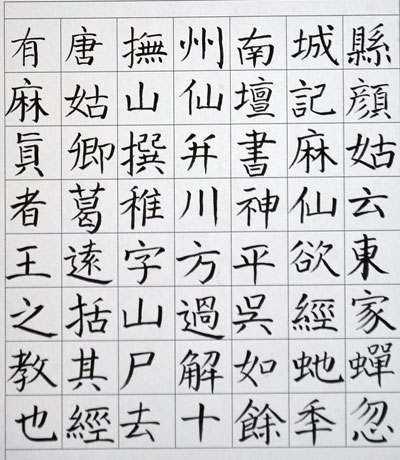 有唐撫州南城縣
麻姑山仙壇記顔
眞卿撰并書麻姑
者葛稚川神仙云
王遠字方平欲東
之括山過吳經家
教其尸解如虵蟬
也經去十餘秊忽